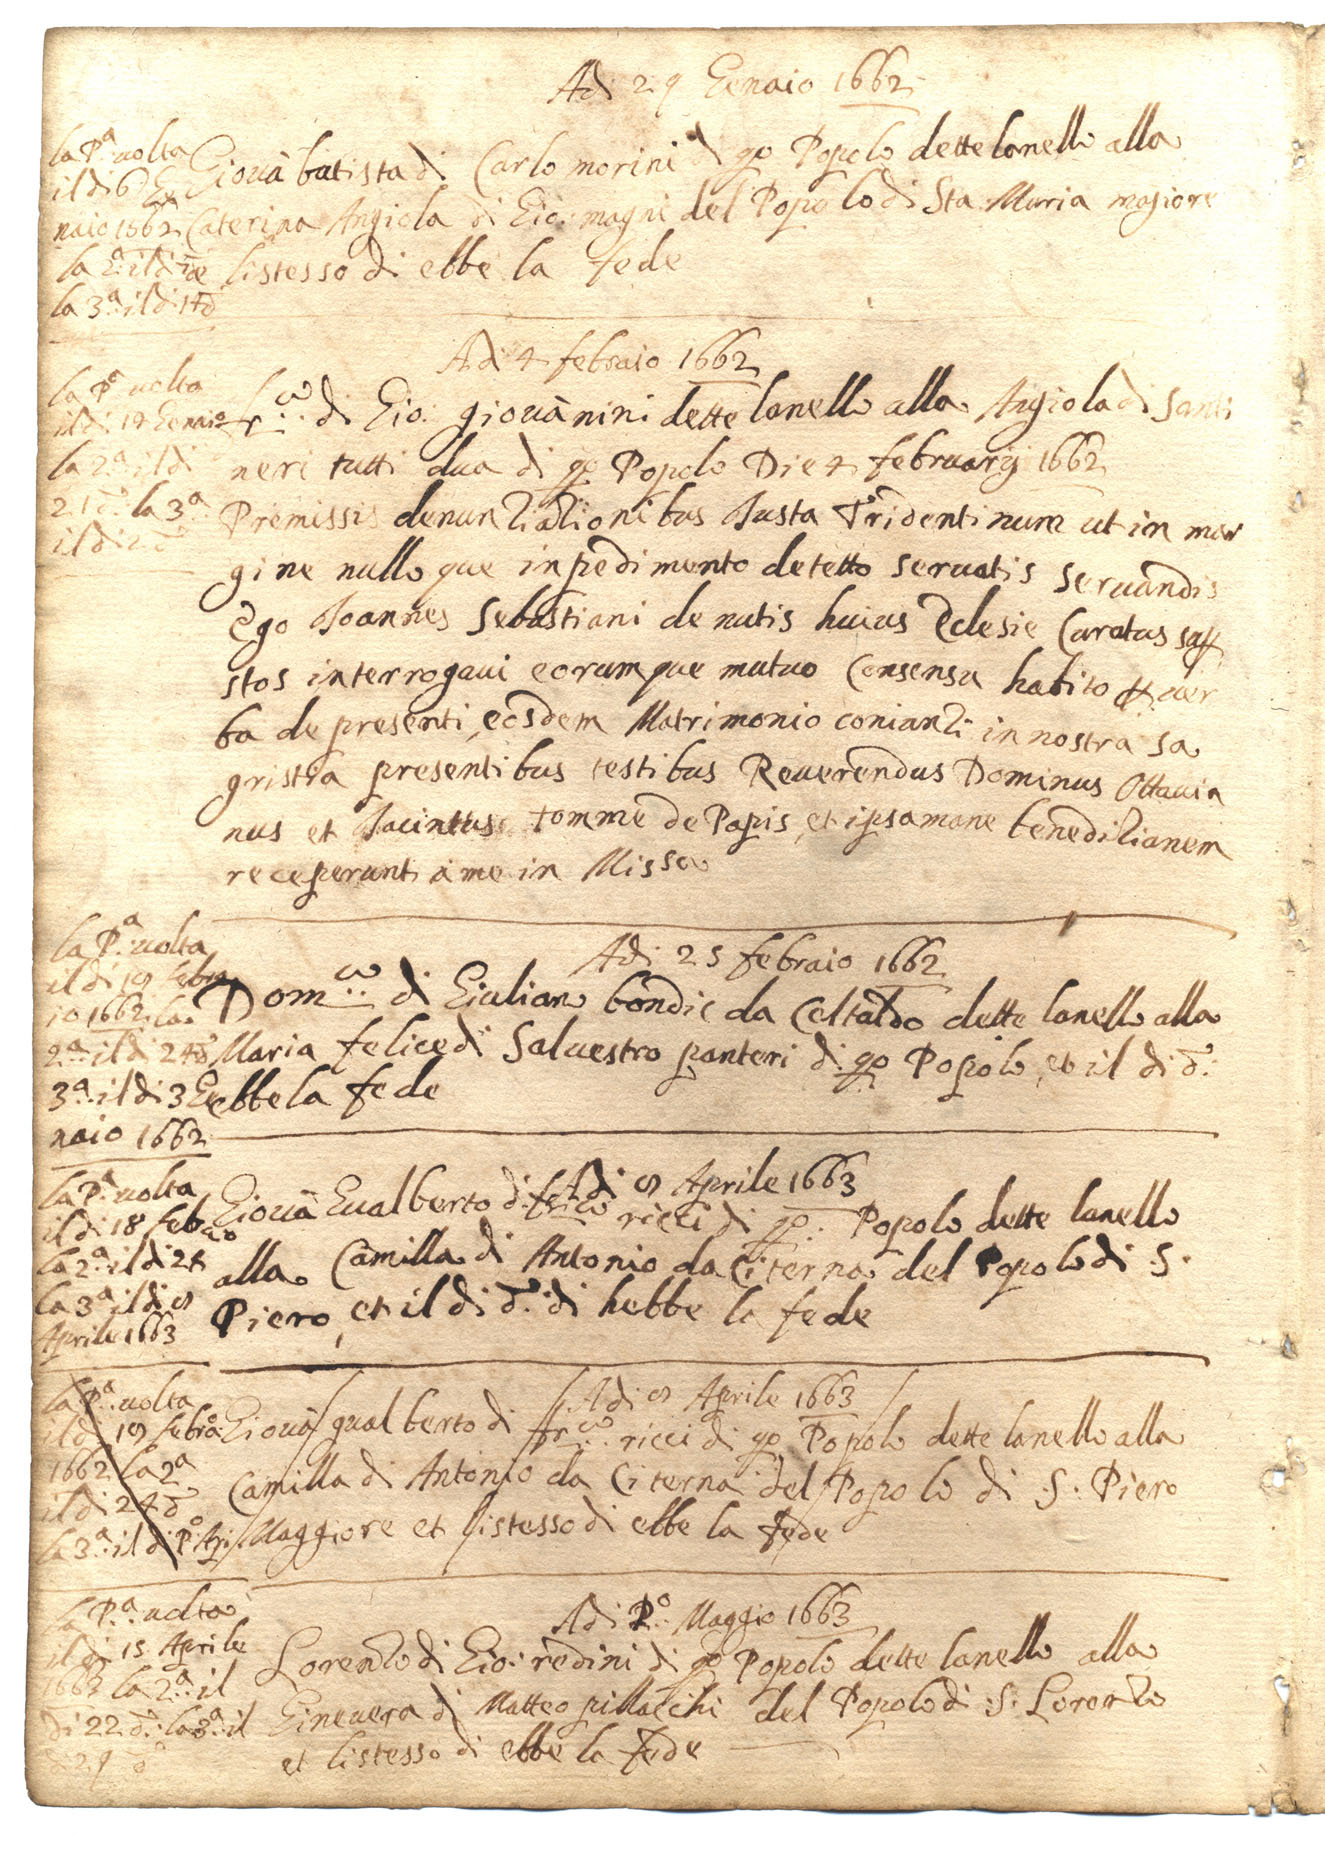 Adi 29 Genaio 1662
la Pa. uolta
il di 6 Ge
naio 1662
la 2a: il di
la 3a: il di 14 d
Giouà batista di Carlo morini di qo Popolo dette lanello alla
Caterina Angiola di Gio: magni del Popolo di Sta Maria magiore
e listesso di ebbe la fede
Adi 4 febraio 1662
la Pa uolta
il di 14 Genaio
la 2a: il di
21 d: la 3a
il di
frco: di Gio: giouànini dette lanello alla Angiola di Santi
neri tutti dua di qo Popolo Die 4 february 1662
Premissis denuntiationibus Justa Tridentinum ut in mar
gine nullo que inpedimento detetto seruatis seruandis
Ego Joannes Sebastiani de nutis huius Eclesie Curatus
stos interrogaui eorumque mutuo Consensu habito p uer
ba de presenti, eosdem Matrimonio coniunti in nostra sa
gristia presentibus testibus Reuerendus Dominus Ottauia
nus et Jacintus tomme de Papis, et ipsamane beneditianem
receperunt à me in Missa
la Pa: uolta
il di 19 febra
io 1662 la
2a: il di 24 d
3a: il di 3 Ge
naio 1662
Adi 25 febraio 1662
Domco: di Giuliano bondic da Celtaldo dette lanello alla
Maria felice di Saluestro panteri di qo Popolo, et il di d:
ebbe la fede
la Pa: uolta
il di 18 febraio
la 2a: il di 24
la 3a il di 9
Aprile 1663
Adi 9 Aprile 1663
Giouà Gualberto di frco ricci di qo: Popolo dette lanello
alla Camilla di Antonio da Citerna del Popolo di S.
Piero, et il di d: di hebbe la fede
la Pa: uolta
il di 19 febro:
1662 la 2a
il di 24 d
la 3a: il di Po Apri
Adi 9 Aprile 1663
Giouà gualberto di frco: ricci di qo Popolo dette lanello alla
Camilla di Antonio da Citerna del Popolo di S: Piero
Maggiore et listesso di ebbe la fede
la Pa: uolta
il di 15 Aprile
1663 la 2a: il
di 22 d: la 3a: il
di 29 d
Adi Po: Maggio 1663
Lorenzo di Gio: redini di qo Popolo dette lanello alla
Gineuera di Matteo pillacchi del Popolo di S: Lorenzo
et listesso di ebbe la fede